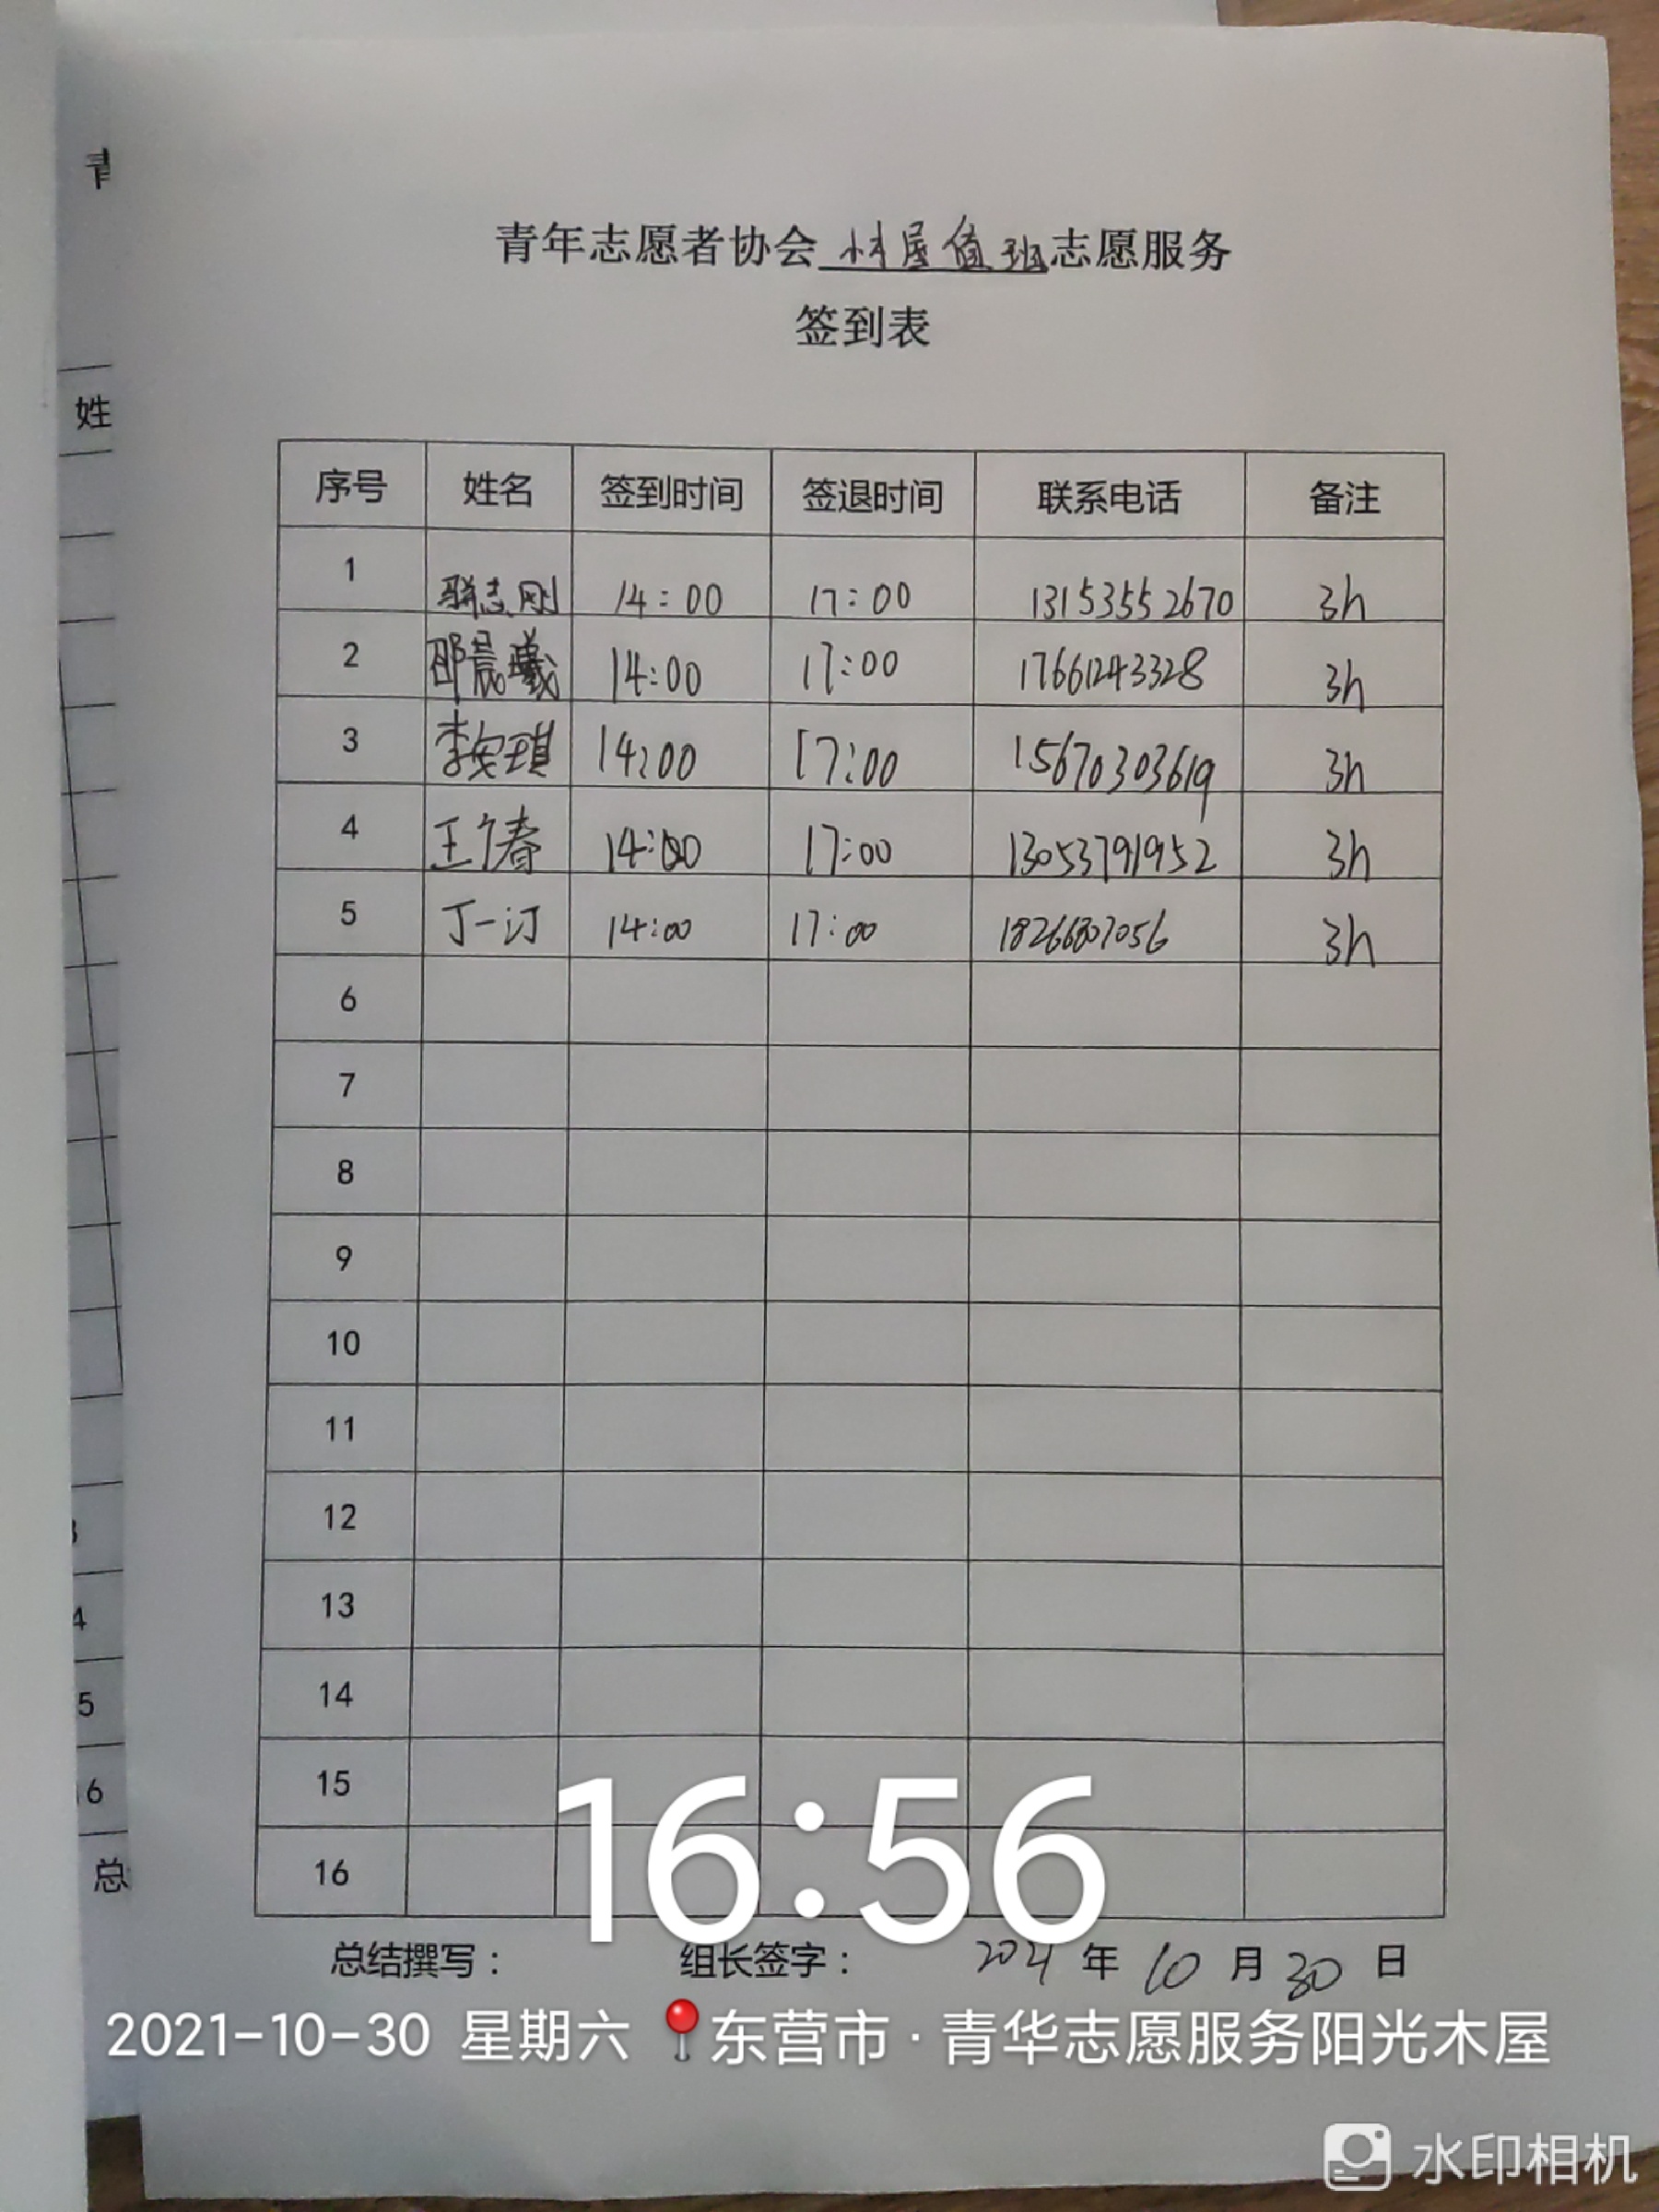 青年志愿者协会木屋值班志愿服务
签到表
序号 姓名 签到时间 签退时间 联系电话 备注
1 志刚 14:00 17:00 13153552670 3h
2 邵晨曦 14:00 17:00 17661243328 3h
3 李安琪 14:00 17:00 15670303619 3h
4 王春 14:00 17:00 13053791952 3h
5 丁一汀 14:00 17:00 3h
6
7
8
9
10
11
12
13
14
15
16
16:56
总结撰写： 组长签字： 2021 年 10 月 30 日
2021-10-30 星期六 东营市·青华志愿服务阳光木屋
水印相机
姓
4
5
6
总